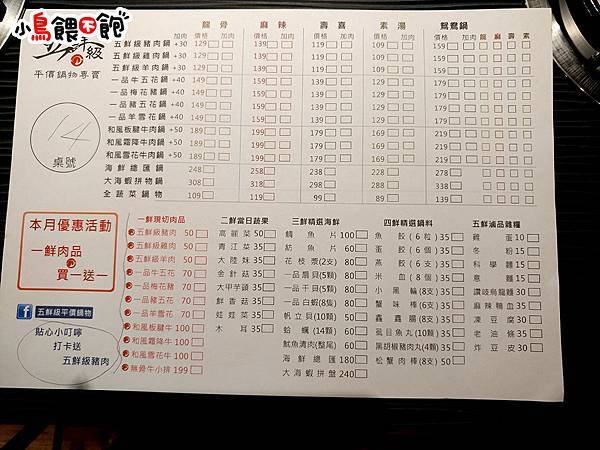 小鳥餵不飽
五鮮級
平價鍋物專賣
14
桌號
龍骨 麻辣 壽喜 素湯 鴛鴦鍋
加肉 價格 加肉 價格 加肉 價格 加肉 價格 加肉 價格 加肉 龍 麻 壽 素
五鮮級豬肉鍋 +30 129 139 119 119 159
五鮮級雞肉鍋 +30 129 139 119 119 159
五鮮級羊肉鍋 +30 129 139 119 119 159
一品牛五花鍋 149 159 139 139 179
一品梅花豬鍋 149 159 139 139 179
一品豬五花鍋 149 159 139 139 179
一品羊雪花鍋 149 159 139 139 179
和風板腱牛肉鍋 +50 189 199 179 179 219
和風霜降牛肉鍋 +50 189 199 179 179 219
和風雪花牛肉鍋 +50 189 199 179 179 219
海鮮總匯鍋 248 258 238 238 278
大海蝦拼物鍋 308 318 298 298 338
全蔬菜鍋物 109 119 99 99 139
本月優惠活動
一鮮肉品
買一送一
五鮮級平價鍋物
貼心小叮嚀
打卡送
五鮮級豬肉
一鮮現切肉品
五鮮級豬肉 50
五鮮級雞肉 50
五鮮級羊肉 50
一品牛五花 70
一品梅花豬 70
一品豬五花 70
一品羊雪花 70
和風板腱牛 100
和風霜降牛 100
和風雪花牛 100
無骨牛小排 199
二鮮當日蔬果
高麗菜 50
青江菜 35
大陸妹 35
金針菇 35
大甲芋頭 35
鮮香菇 35
娃娃菜 35
木耳 35
三鮮精選海鮮
鯛魚片 100
魴魚片 60
花枝漿(2支) 80
一品扇貝(5顆) 80
一品干貝(5顆) 80
一品白蝦(8隻) 80
帆立貝(10顆) 50
蛤蠣(14顆) 60
魷魚清肉(整尾) 60
海鮮總匯 180
大海蝦拼盤 240
四鮮精選鍋料
魚餃(6粒) 35
蛋餃(6個) 35
燕餃(6支) 35
米血(8個) 35
小黑輪(8支) 35
蟹味棒(6支) 35
鑫鑫腸(8支) 35
虱目魚丸(10顆) 35
黑胡椒豬肉丸(4顆) 35
松蟹肉棒(8支) 50
五鮮滷品雜糧
雞蛋 10
冬粉 15
科學麵 15
意麵 15
讚岐烏龍麵 30
麻辣鴨血 35
凍豆腐 30
老油條 35
炸豆皮 30